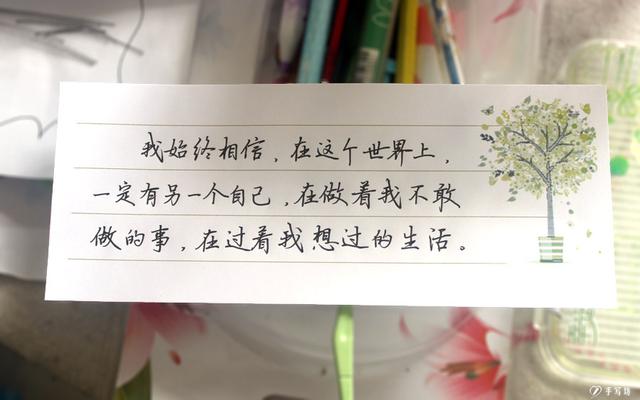 我始终相信，在这个世界上，
一定有另一个自己，在做着我不敢
做的事，在过着我想过的生活。
手写场